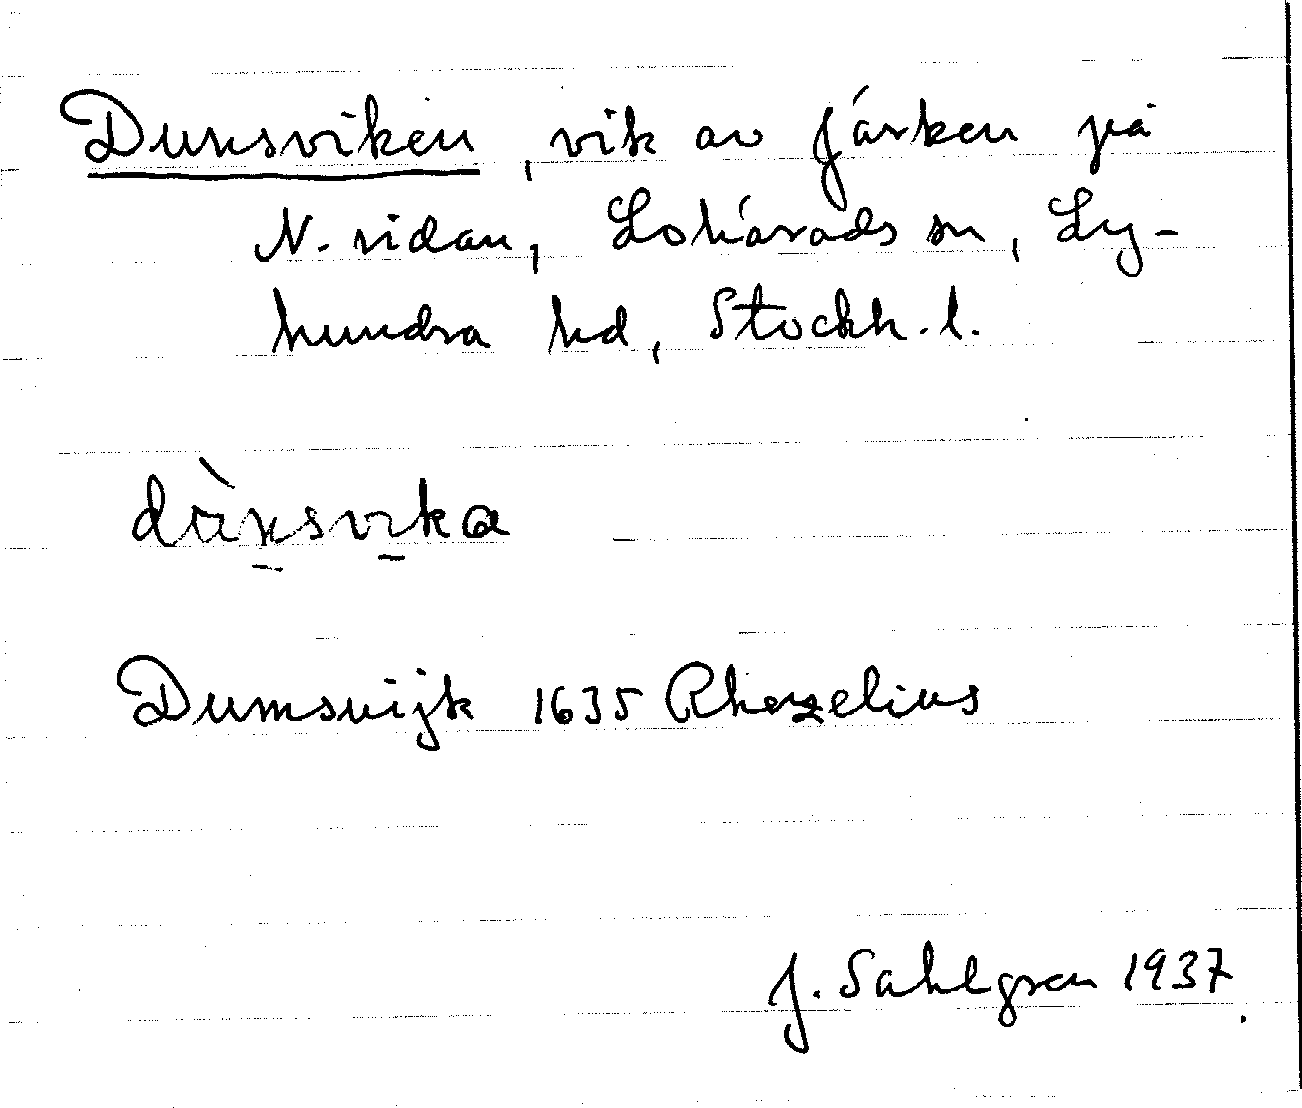 Dunsviken, vik av Järken på
N. sidan, Lohärads sn, Ly-
hundra hd, Stockh. l.
dùnsvika
Dumsuijk 1635 Rhezelius
J. Sahlgren 1937.